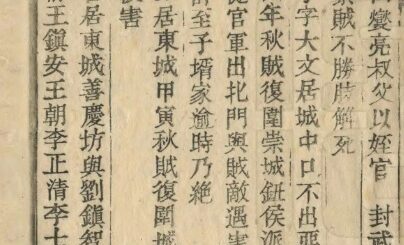 燮亮叔父以姪官 封武
賊不勝時解死
字大文居城中口不出惡
年秋賊復圍崇城鈕侯派
從官軍出北門與賊敵遇害
至子壻家逾時乃絶
居東城甲寅秋賊復圍城
害
居東城善慶坊與劉鎭智
王鎭安王朝李正清李十